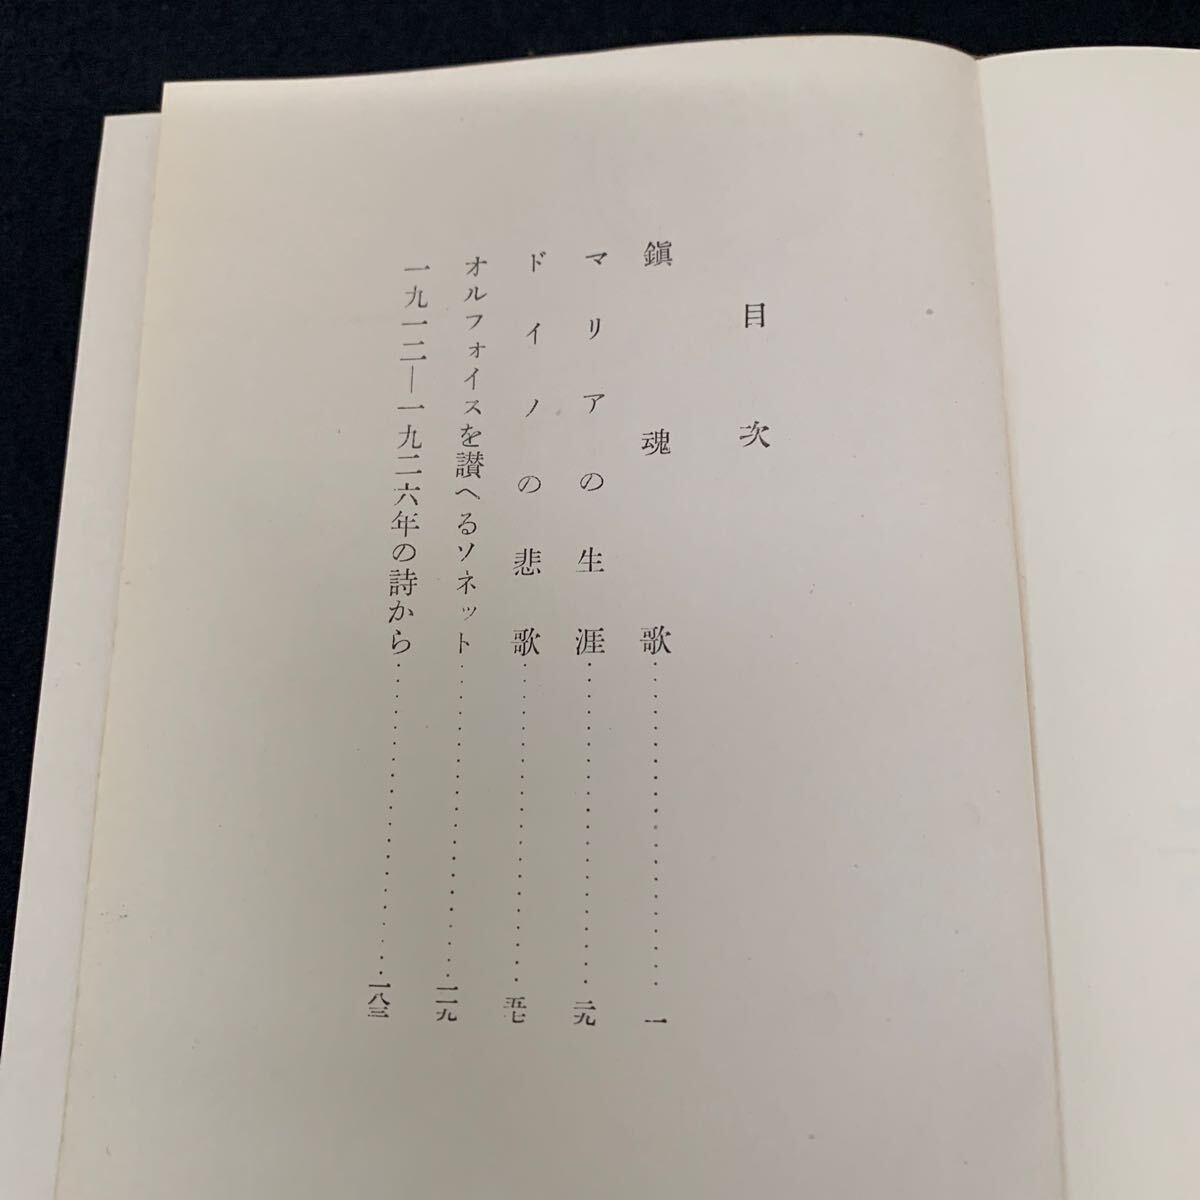 目次
鎭魂歌……………………一
マリアの生涯……………………二九
ドイノの悲歌……………………五七
オルフォイスを讃へるソネット……………………一二九
一九一二―一九二六年の詩から……………………一八三